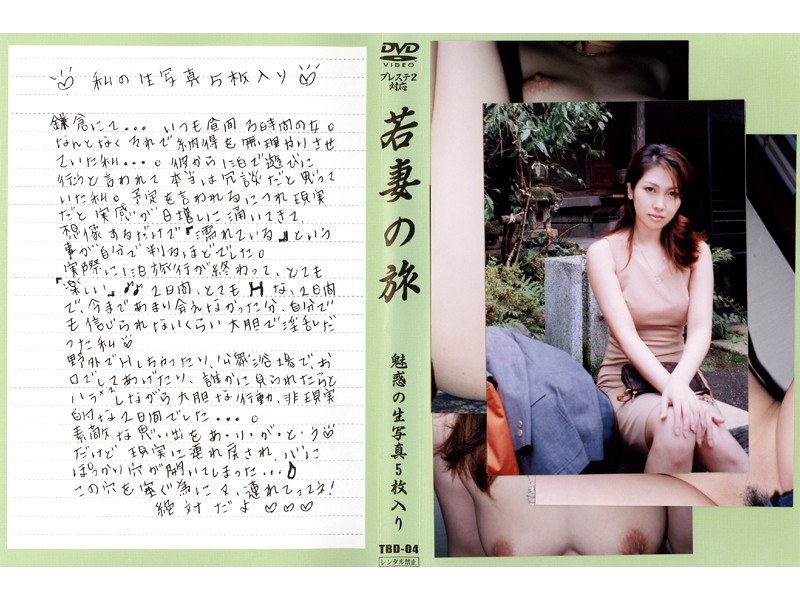 ♡ 私の生写真5枚入り ♡
鎌倉にて... いつも昼間3時間の女。
なんとなくそれで納得を無理やりさせ
ていた私...。彼から1泊で遊びに
行こうと言われて本当は冗談だと思って
いた私。予定を言われるにつれ現実
だと実感が日増しに涌いてきて、
想像するだけで『濡れている』という
事が自分で判るほどでした。
実際に1泊旅行が終わって、とても
『楽しい』♪♪2日間、とてもHな、2日間
で、今まであまり会えなかった分、自分で
も信じられないくらい大胆で淫乱だ
った私♡
野外でHしちゃったり、公衆浴場で、お
口でしてあげたり、誰かに見られたらと
ハラハラしながら大胆な行動、非現実
的な2日間でした...。
素敵な思い出をあ・り・が・と・う♡
だけど現実に連れ戻され、心に
ぽっかり穴が開いてしまった...
この穴を塞ぐ為に又、連れてってネ!
絶対だよ ♡♡♡
DVD
VIDEO
プレステ2
対応
若妻の旅
魅惑の生写真5枚入り
TBD-04
レンタル禁止